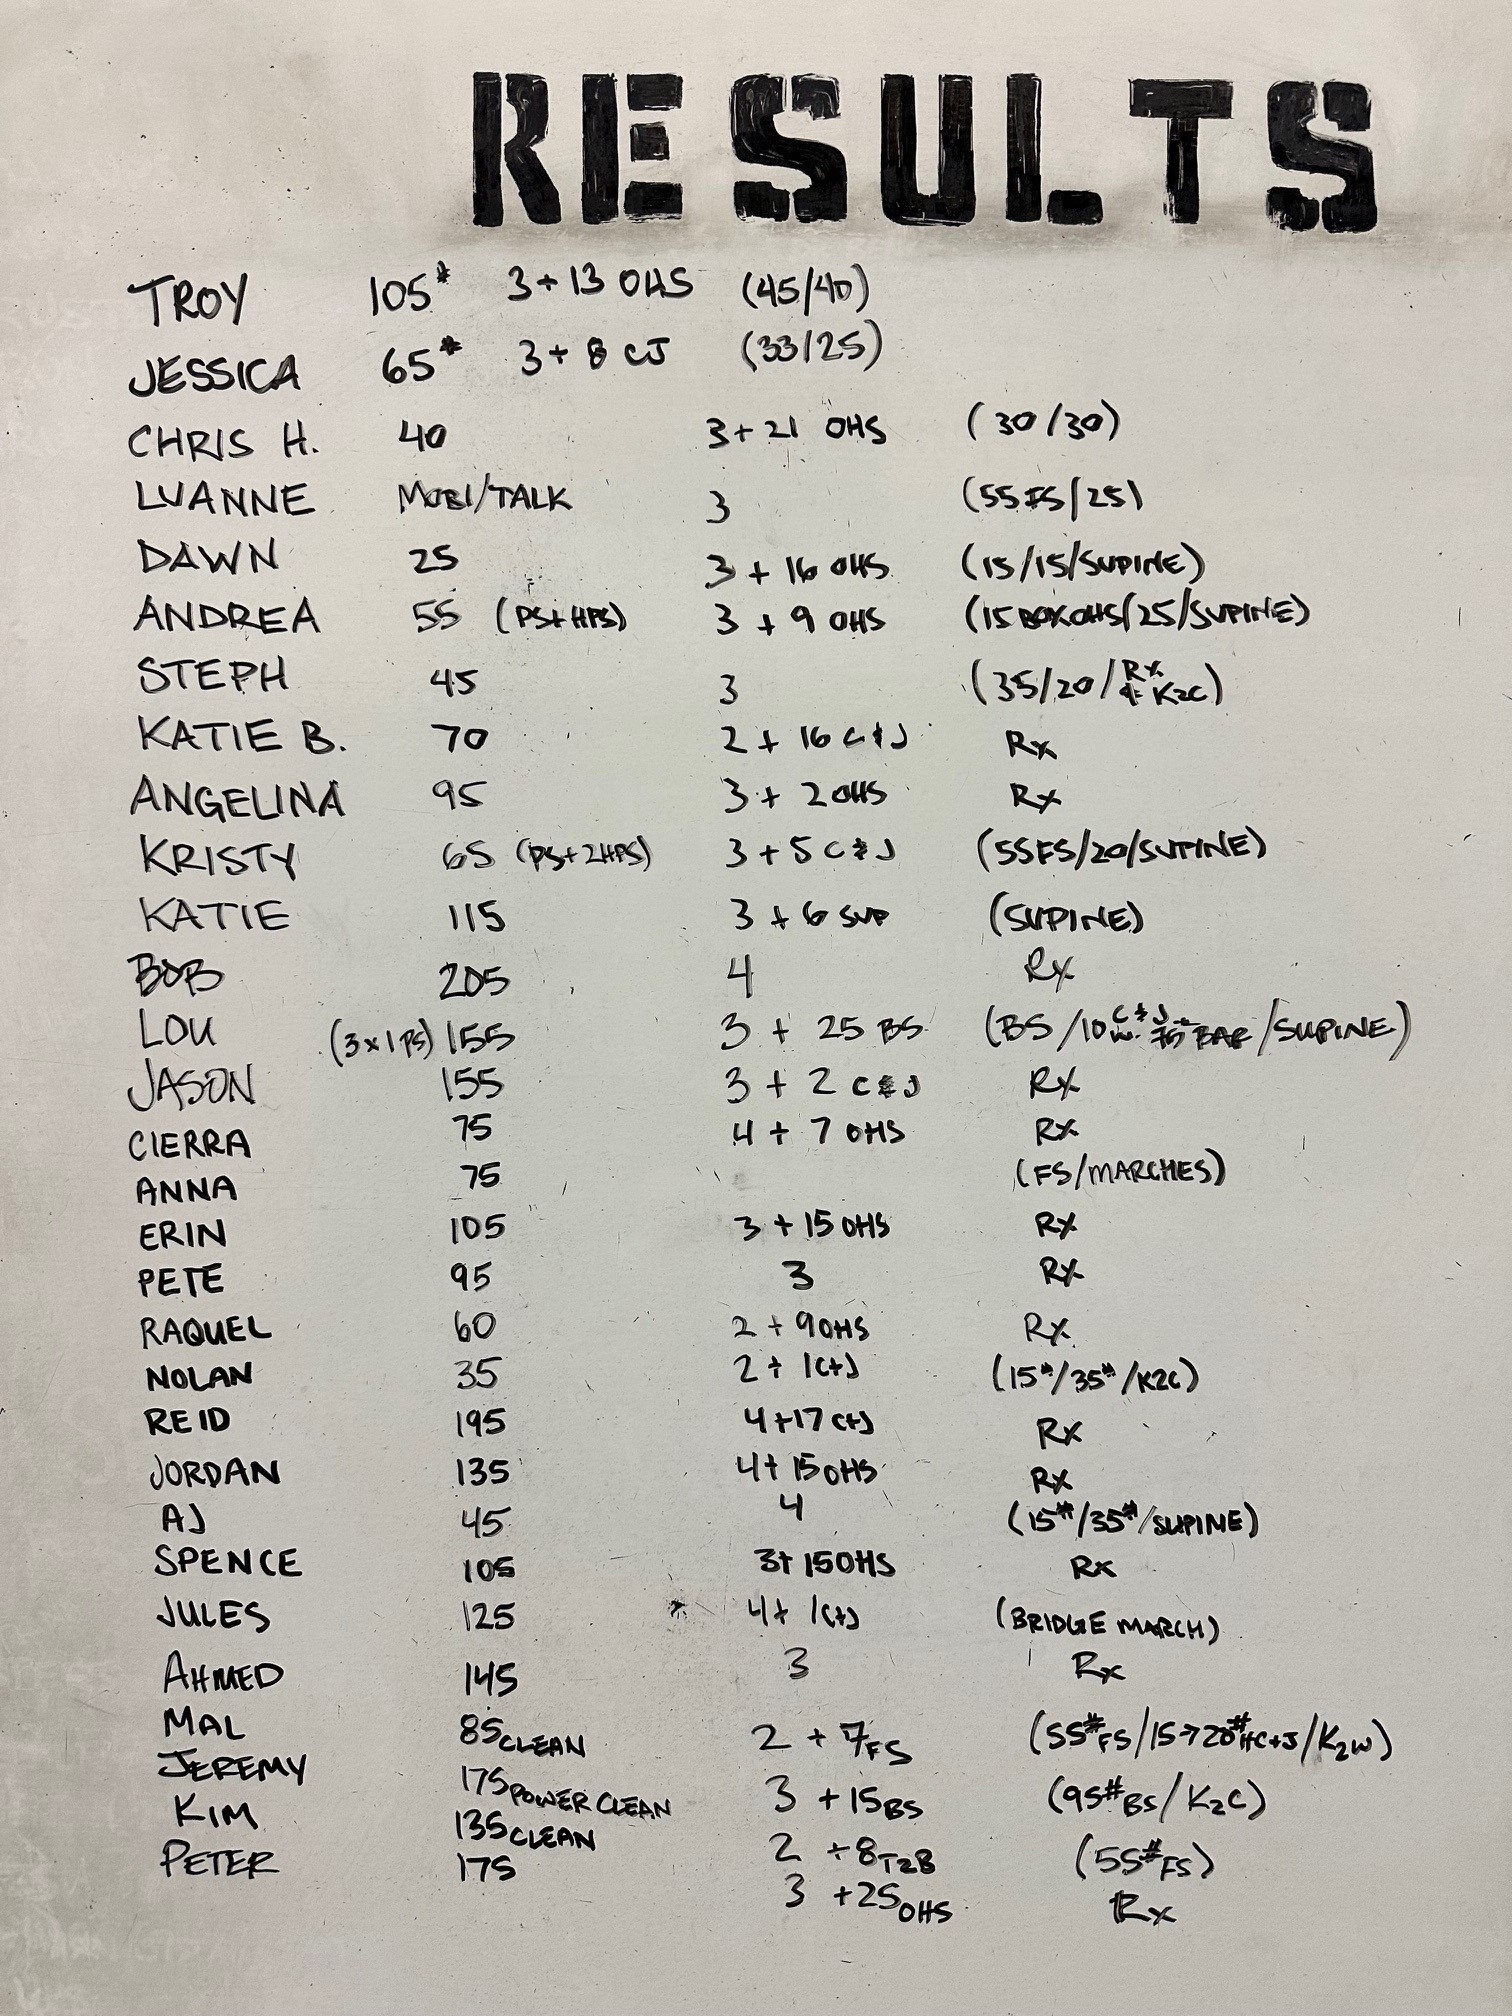 RESULTS
TROY 105# 3+13 OHS (45/40)
JESSICA 65# 3+8 CJ (33/25)
CHRIS H. 40 3+21 OHS (30/30)
LUANNE MOBI/TALK 3 (55FS/25)
DAWN 25 3+16 OHS (15/15/SUPINE)
ANDREA 55 (PS+HPS) 3+9 OHS (15 BOX OHS/25/SUPINE)
STEPH 45 3 (35/20/Rx & K2C)
KATIE B. 70 2+16 C&J Rx
ANGELINA 95 3+2 OHS Rx
KRISTY 65 (PS+2HPS) 3+5 C&J (55FS/20/SUPINE)
KATIE 115 3+6 SUP (SUPINE)
BOB 205 4 Rx
LOU (3x1 PS) 155 3+25 BS (BS/10 C&J W. BAR/SUPINE)
JASON 155 3+2 C&J Rx
CIERRA 75 4+7 OHS Rx
ANNA 75 (FS/MARCHES)
ERIN 105 3+15 OHS Rx
PETE 95 3 Rx
RAQUEL 60 2+9 OHS Rx
NOLAN 35 2+1C+J (15#/35#/K2C)
REID 195 4+17 C+J Rx
JORDAN 135 4+15 OHS Rx
AJ 45 4 (15#/35#/SUPINE)
SPENCE 105 3+15 OHS Rx
JULES 125 4+1C+J (BRIDGE MARCH)
AHMED 145 3 Rx
MAL 85 CLEAN 2+7 FS (55# FS/15→20# HC+J/K2W)
JEREMY 175 POWER CLEAN 3+15 BS (95# BS/K2C)
KIM 135 CLEAN 2+8 T2B (55# FS)
PETER 175 3+25 OHS Rx